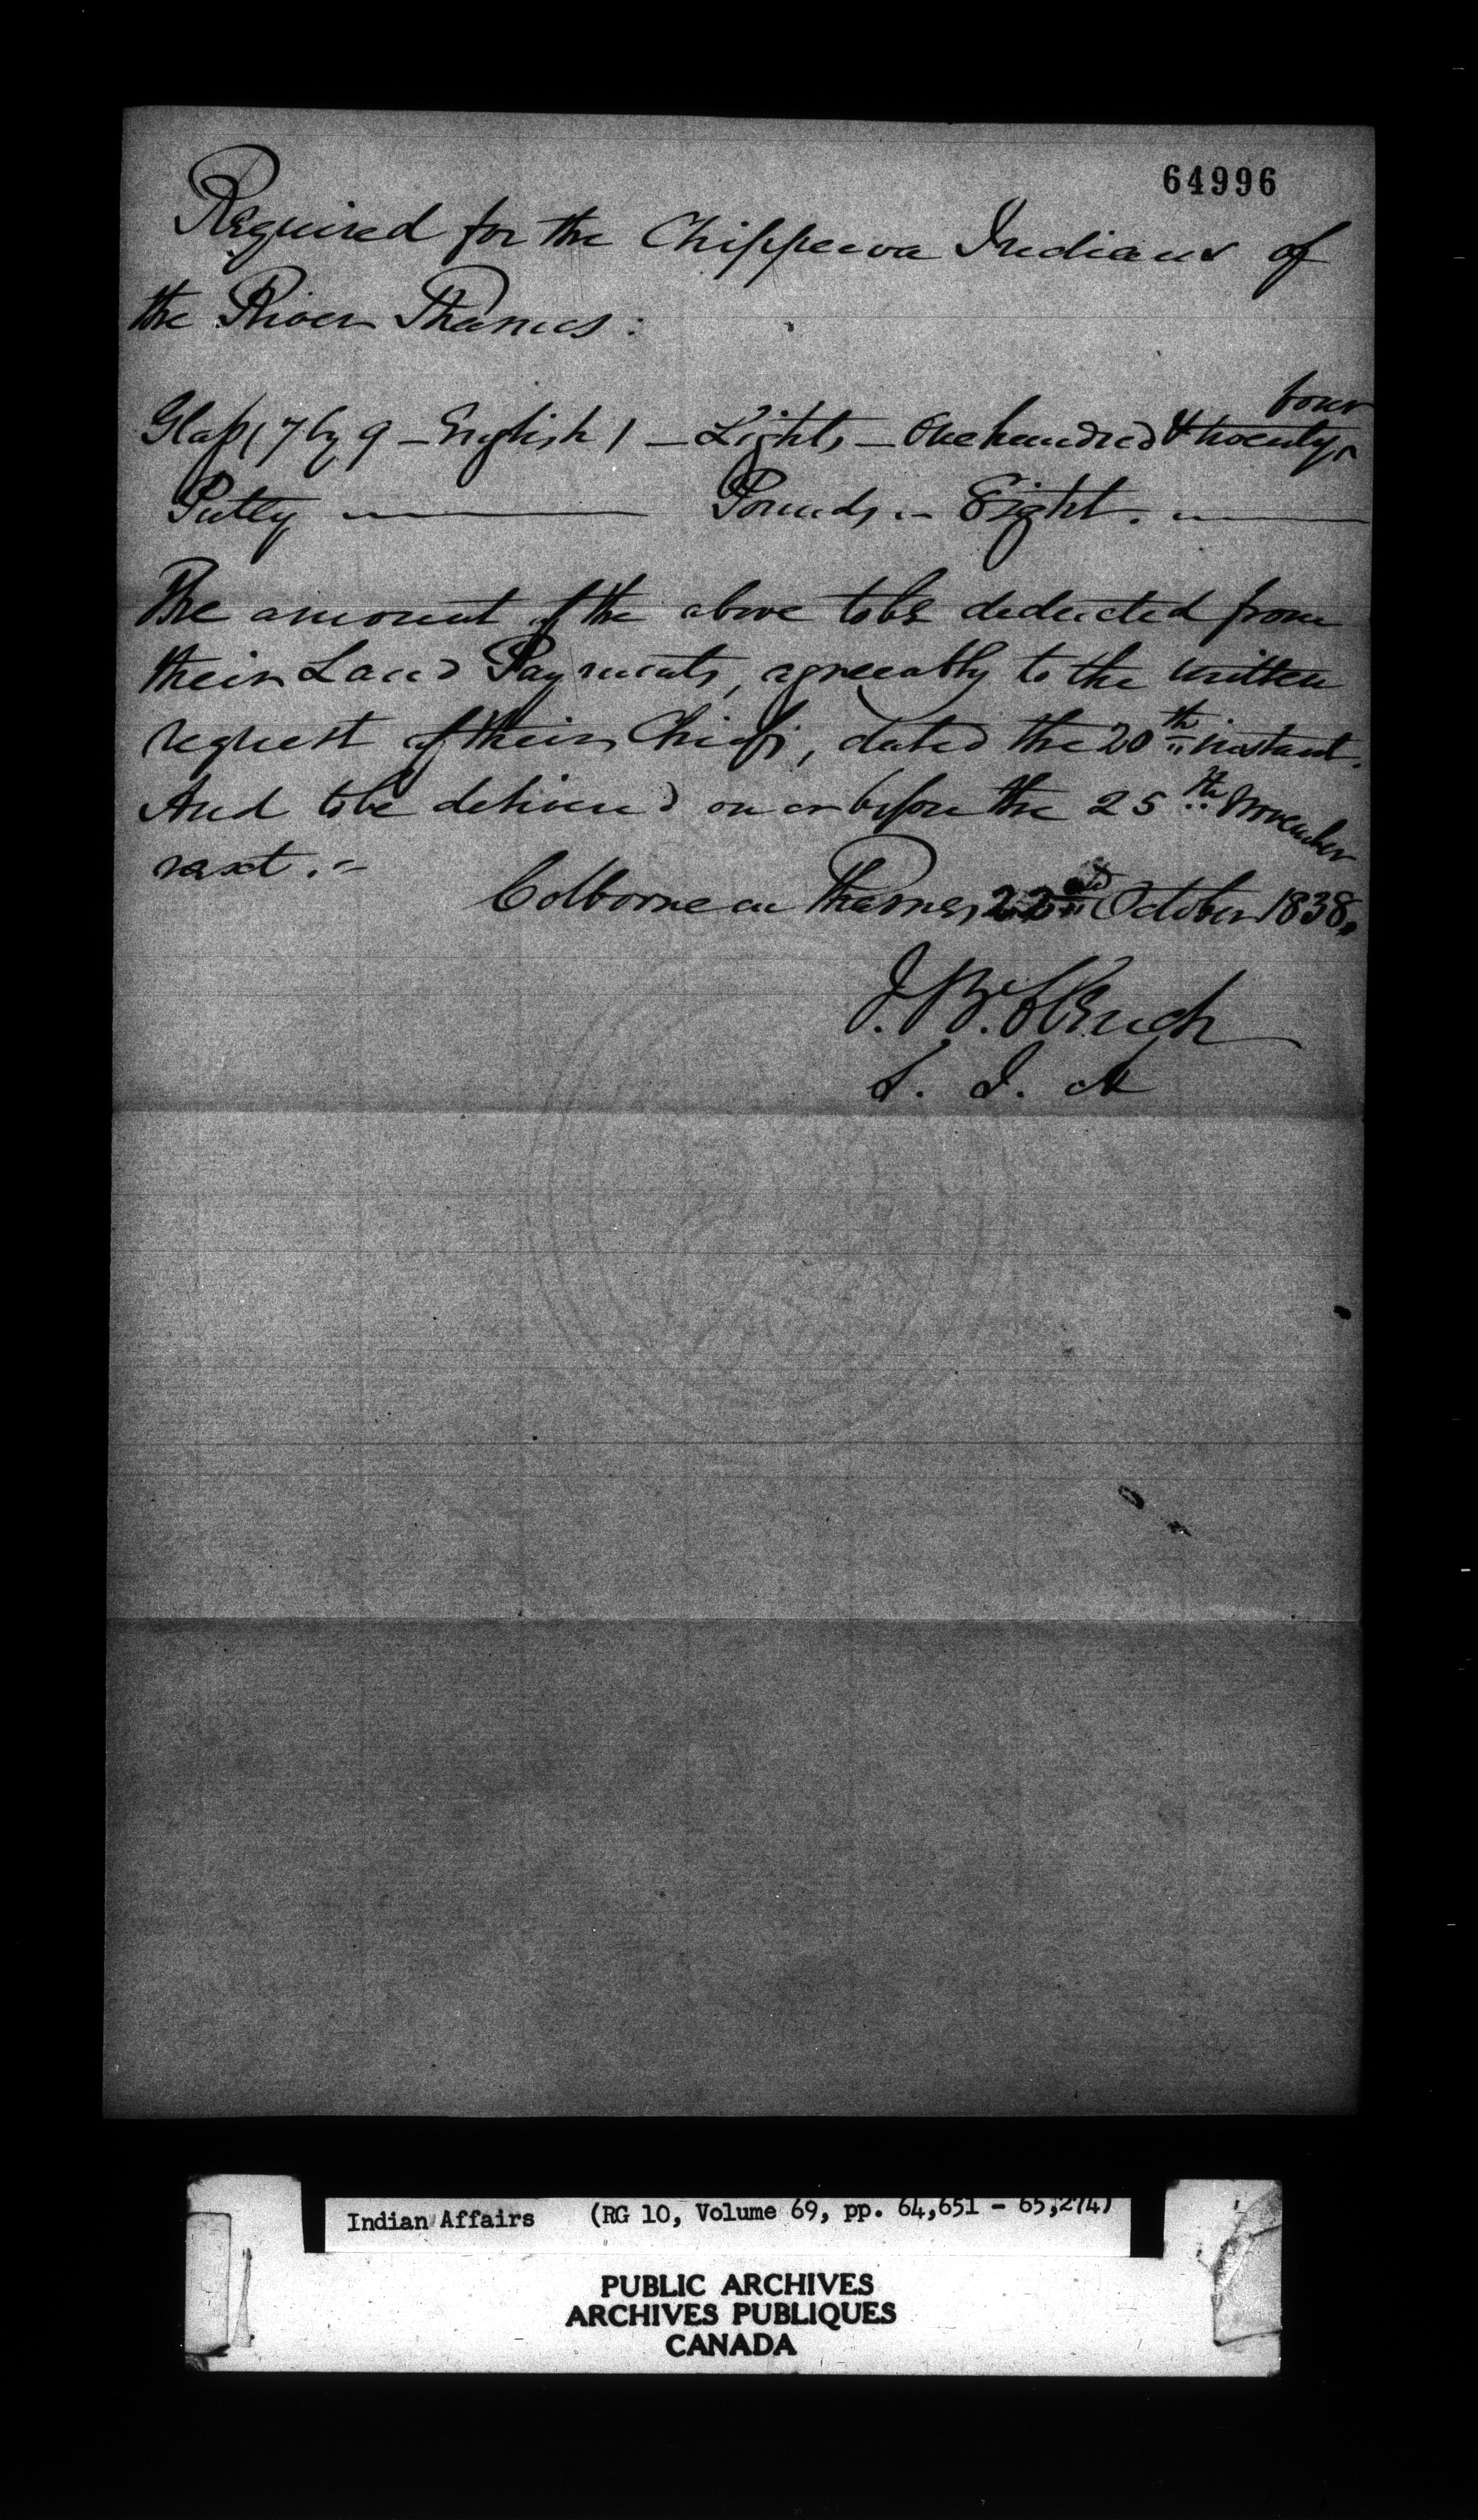 64996
Required for the Chippewa Indians of
the River Thames:
four
Glass (7 by 9 - English) - Lights - One hundred & twenty^
Putty Pounds - Eight.
The amount of the above to be deducted from
their Land Payments, agreeably to the written
request of their Chiefs, dated the 20th instant.
And to be delivered on or before the 25th November
next. -
Colborne on Thames, 22nd October 1838.
J. B. Clench
S. I. A
Indian Affairs (RG 10, Volume 69, pp. 64,651 - 65,274)
PUBLIC ARCHIVES
ARCHIVES PUBLIQUES
CANADA